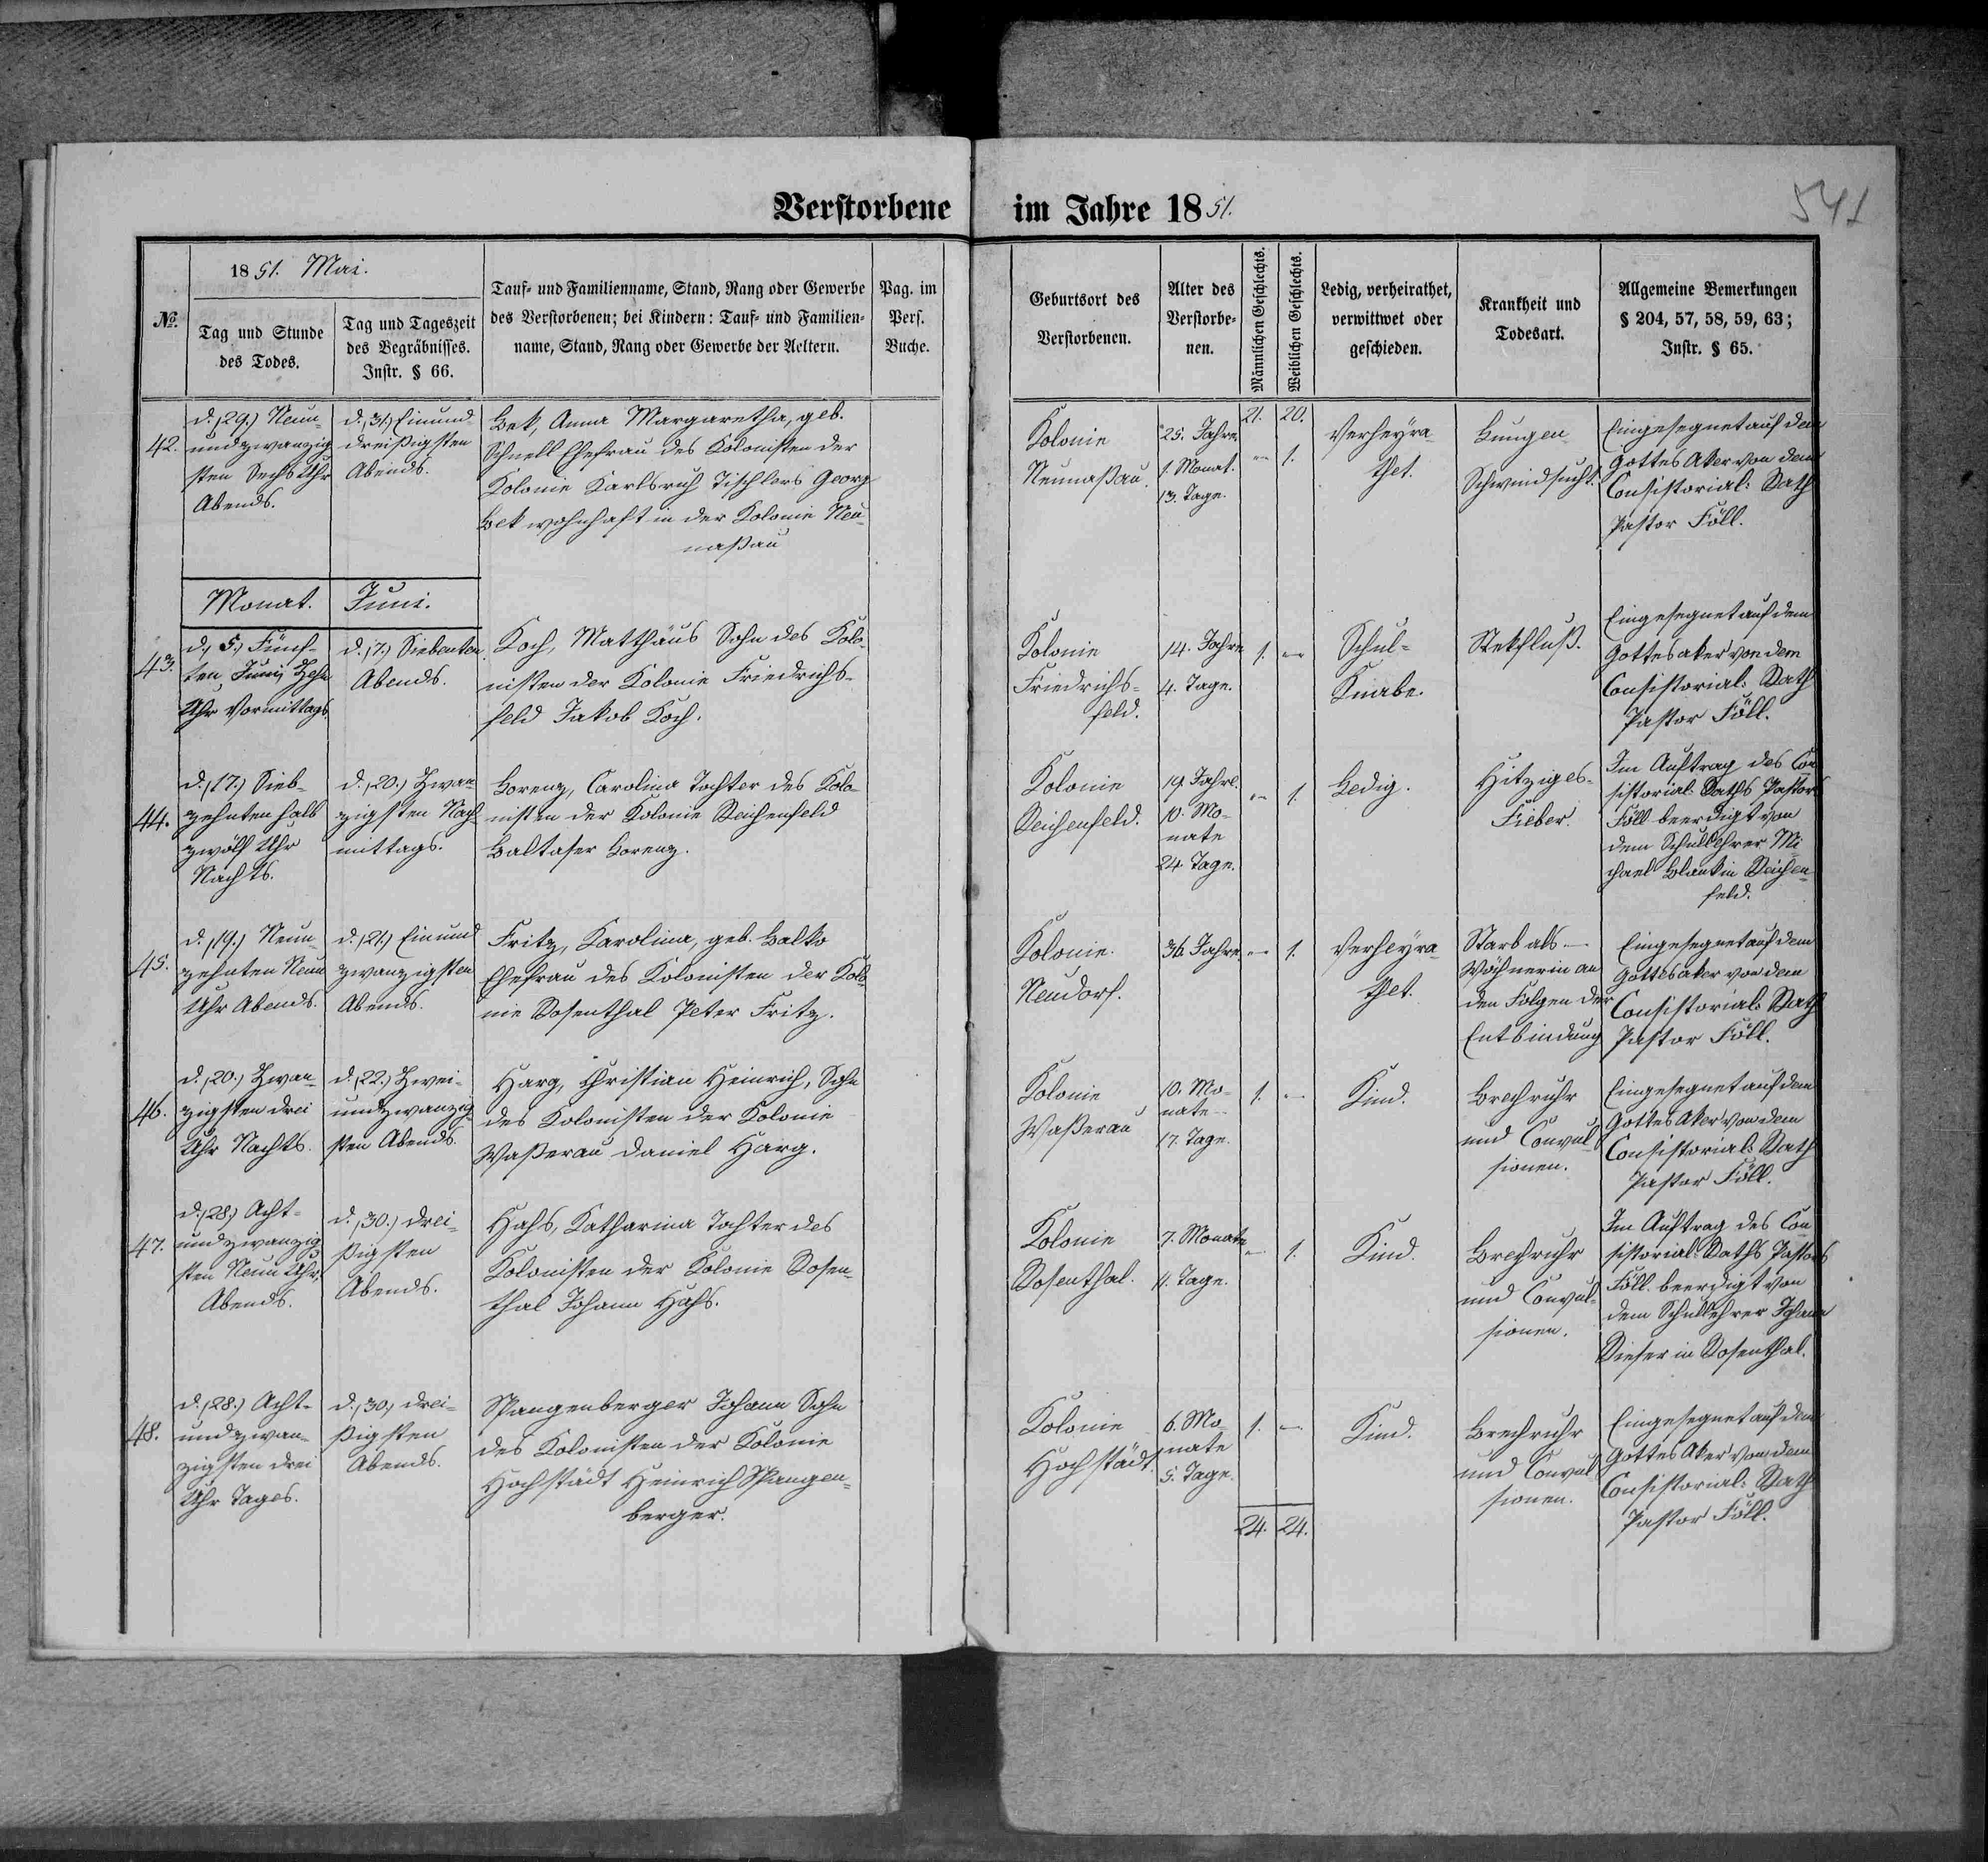 541
Verstorbene im Jahre 1851.
No.
1851. Mai.
Tag und Stunde
des Todes.
Tag und Tageszeit
des Begräbnisses.
Instr. § 66.
Tauf- und Familienname, Stand, Rang oder Gewerbe
des Verstorbenen; bei Kindern: Tauf- und Familien-
name, Stand, Rang oder Gewerbe der Aeltern.
Pag. im
Pers.
Buche.
Geburtsort des
Verstorbenen.
Alter des
Verstorbe-
nen.
Männlichen Geschlechts.
Weiblichen Geschlechts.
Ledig, verheirathet,
verwittwet oder
geschieden.
Krankheit und
Todesart.
Allgemeine Bemerkungen
§ 204, 57, 58, 59, 63;
Instr. § 65.
21. 20.
42.
d. (29.) Neun-
undzwanzig
sten Sechs Uhr
Abends.
d. (31.) Einund
dreißigsten
Abends.
Bek, Anna Margaretha, geb.
Schnell Ehefrau des Kolonisten der
Kolonie Karlsruh Tischlers Georg
Bek wohnhaft in der Kolonie Neu-
naßau
Kolonie
Neunaßau.
25. Jahre
1. Monat.
13. Tage.
— 1.
Verheyra-
thet.
Lungen-
Schwindsucht.
Eingesegnet auf dem
Gottes Aker von dem
Consistorial: Rath
Pastor Föll.
Monat. Juni.
43.
d. (5.) Fünf-
ten Juni, Zehn
Uhr Vormittags
d. (7.) Siebenten
Abends.
Koch, Matthäus Sohn des Kolo-
nisten der Kolonie Friedrichs-
feld Jakob Koch.
Kolonie
Friedrichs-
feld.
14. Jahre
4. Tage.
1. —
Schul-
Knabe.
Stekfluß.
Eingesegnet auf dem
Gottesaker von dem
Consistorial: Rath
Pastor Föll.
44.
d. (17.) Sieb-
zehnten halb
zwölf Uhr
Nachts.
d. (20.) Zwan-
zigsten Nach-
mittags.
Lorenz, Carolina Tochter des Kolo-
nisten der Kolonie Reichenfeld
Baltaser Lorenz.
Kolonie
Reichenfeld.
19. Jahre.
10. Mo-
nate
24. Tage.
— 1.
Ledig.
Hitziges-
Fieber.
Im Auftrag des Con
sistorial-Raths Pastors
Föll beerdigt von
dem Schullehrer Mi
chael Blank in Reichen-
feld.
45.
d. (19.) Neun-
zehnten Neun
Uhr Abends.
d. (21.) Einund
zwanzigsten
Abends.
Fritz, Karolina, geb. Balko
Ehefrau des Kolonisten der Kolo-
nie Rosenthal Peter Fritz.
Kolonie.
Neudorf.
36. Jahre
— 1.
Verheyra-
thet.
Starb als —
Wöchnerin an
den Folgen der
Entbindung
Eingesegnet auf dem
Gottesaker von dem
Consistorial: Rath
Pastor Föll.
46.
d. (20.) Zwan-
zigsten drei
Uhr Nachts.
d. (22.) Zwei-
undzwanzig-
sten Abends.
Harg, Christian Heinrich, Sohn
des Kolonisten der Kolonie
Waßerau Daniel Harg.
Kolonie
Waßerau
10. Mo-
nate
17. Tage.
1. —
Kind.
Brechruhr
und Convul-
sionen.
Eingesegnet auf dem
Gottes Aker von dem
Consistorial: Rath
Pastor Föll.
47.
d. (28.) Acht-
undzwanzig
sten Neun Uhr,
Abends.
d. (30.) drei-
ßigsten
Abends.
Hahs, Katharina Tochter des
Kolonisten der Kolonie Rosen-
thal Johann Hahs.
Kolonie
Rosenthal.
7. Monate
11. Tage.
— 1.
Kind.
Brechruhr
und Convul-
sionen.
Im Auftrag des Con
sistorial-Raths Pastors
Föll. beerdigt von
dem Schullehrer Johann
in Rosenthal.
48.
d. (28.) Acht-
undzwan-
zigsten drei
Uhr Tages.
d. (30.) drei-
ßigsten
Abends.
Spangenberger Johann Sohn
des Kolonisten der Kolonie
Hochstädt Heinrich Spangen-
berger.
Kolonie
Hochstädt
6. Mo
nate
5. Tage.
1. —
Kind.
Brechruhr
und Convul
sionen.
Eingesegnet auf dem
Gottes Aker von dem
Consistorial: Rath
Pastor Föll.
24. 24.